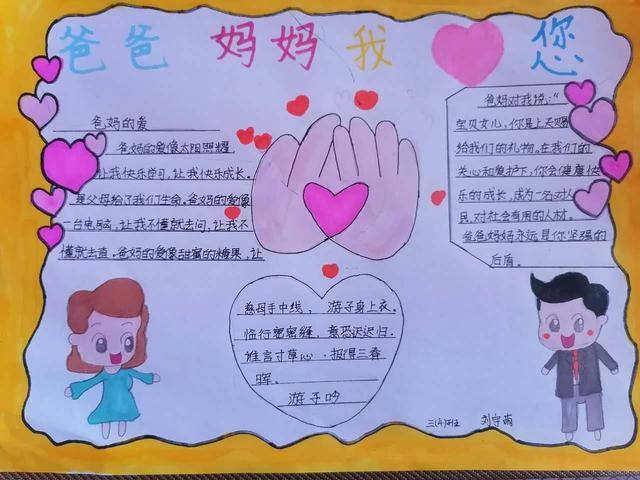 爸爸妈妈我您
爸妈的爱
爸妈的爱像太阳照耀
让我快乐学习，让我快乐成长。
是父母给了我们生命。爸妈的爱像
一台电脑，让我不懂就去问，让我不
懂就去查。爸妈的爱像甜蜜的糖果，让
爸妈对我说：“
宝贝女儿，你是上天赐
给我们的礼物。在我们的
关心和爱护下，你会健康快
乐的成长，成为一名对人
民，对社会有用的人材。
爸爸妈妈永远是你坚强的
后盾。
慈母手中线，游子身上衣。
临行密密缝，意恐迟迟归。
谁言寸草心，报得三春
晖。
游子吟
三(4)班 刘宇萌